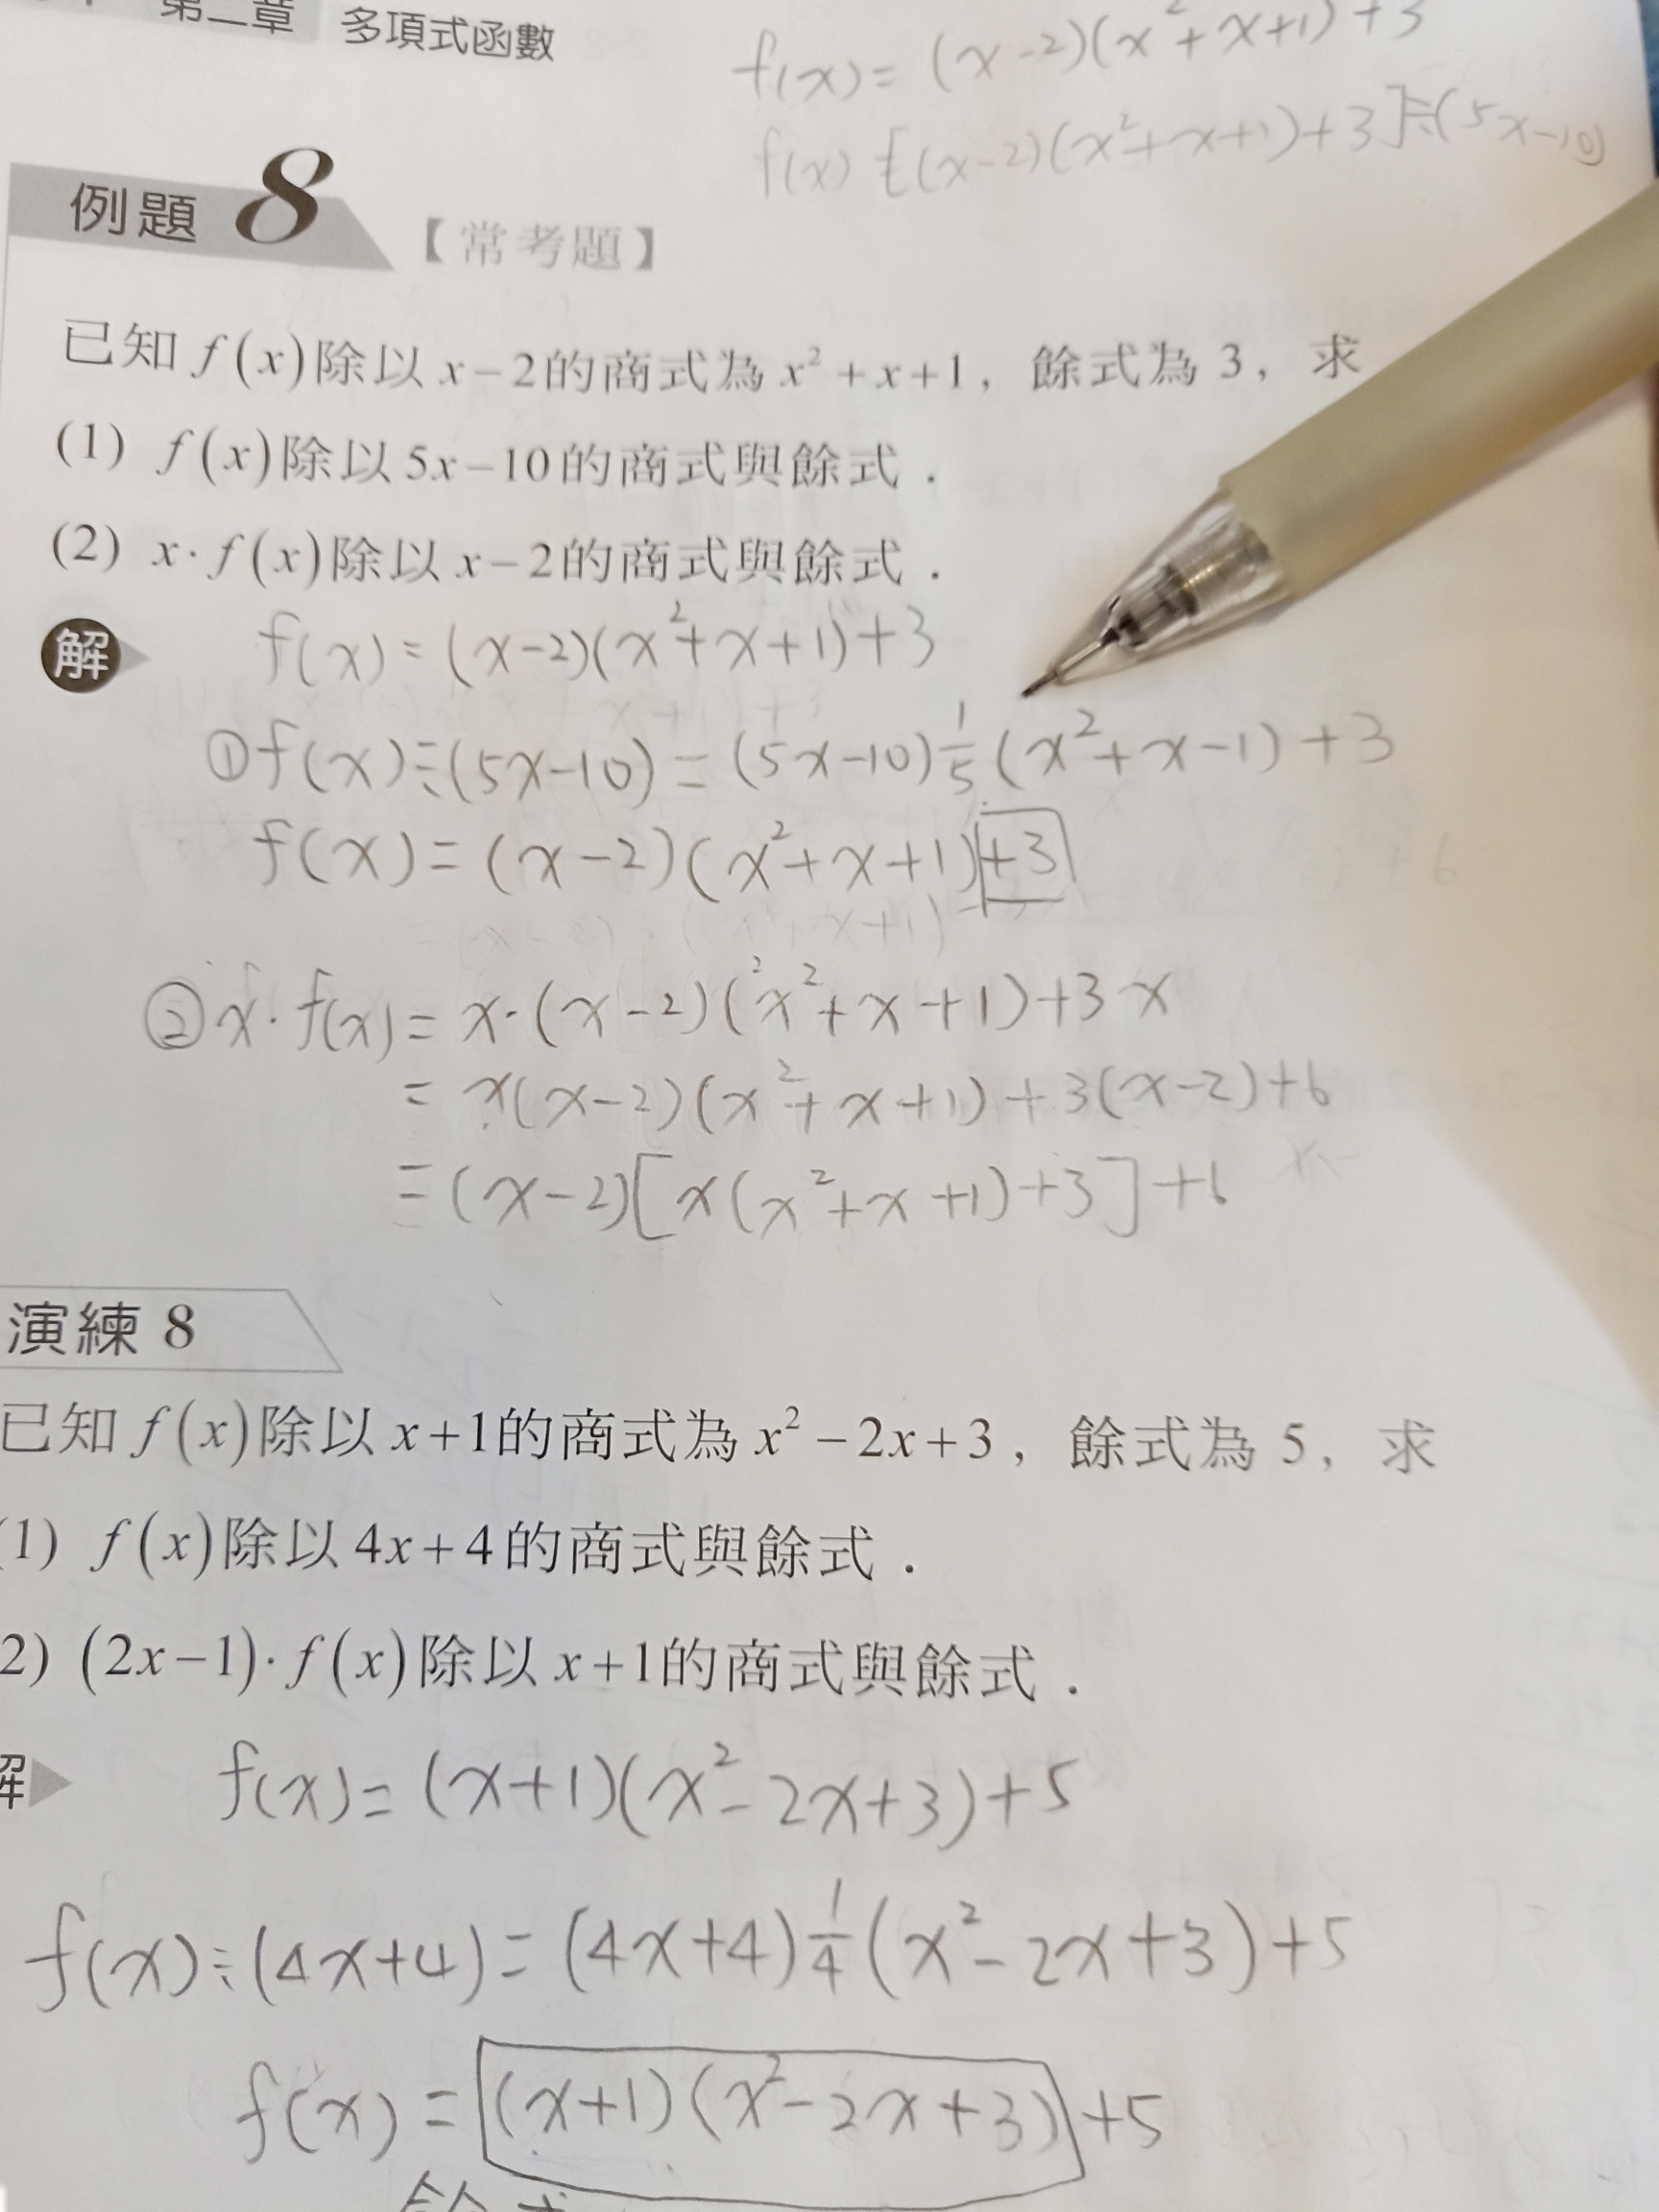 第二章 多項式函數
f(x) = (x-2)(x²+x+1)+3
f(x) [(x-2)(x²+x+1)+3]÷(5x-10)
例題 8 【常考題】
已知 f(x) 除以 x-2 的商式為 x²+x+1，餘式為 3，求
(1) f(x) 除以 5x-10 的商式與餘式．
(2) x·f(x) 除以 x-2 的商式與餘式．
解
f(x) = (x-2)(x²+x+1)+3
①f(x)÷(5x-10) = (5x-10)1/5(x²+x-1)+3
f(x) = (x-2)(x²+x+1)+3
②x·f(x) = x·(x-2)(x²+x+1)+3x
= x(x-2)(x²+x+1)+3(x-2)+6
= (x-2)[x(x²+x+1)+3]+6
演練 8
已知 f(x) 除以 x+1 的商式為 x²-2x+3，餘式為 5，求
(1) f(x) 除以 4x+4 的商式與餘式．
2) (2x-1)·f(x) 除以 x+1 的商式與餘式．
解
f(x) = (x+1)(x²-2x+3)+5
f(x)÷(4x+4) = (4x+4)1/4(x²-2x+3)+5
f(x) = (x+1)(x²-2x+3)+5